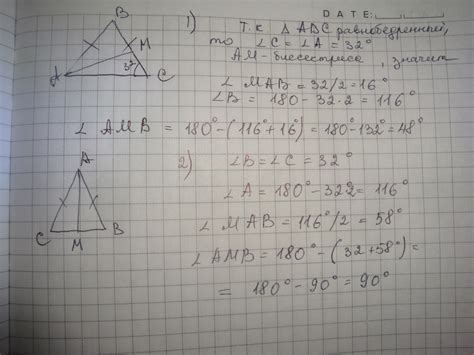 DATE:
1) Т.к Δ ABC равнобедренный,
то ∠C = ∠A = 32°
AM - биссестресе, значит
∠ MAB = 32/2 = 16°
∠B = 180 - 32·2 = 116°
∠ AMB = 180° - (116° + 16°) = 180° - 132° = 48°
B
M
32°
A
C
2) ∠B = ∠C = 32°
∠A = 180° - 32·2 = 116°
∠ MAB = 116°/2 = 58°
∠ AMB = 180° - (32 + 58°) =
= 180° - 90° = 90°
A
C
M
B